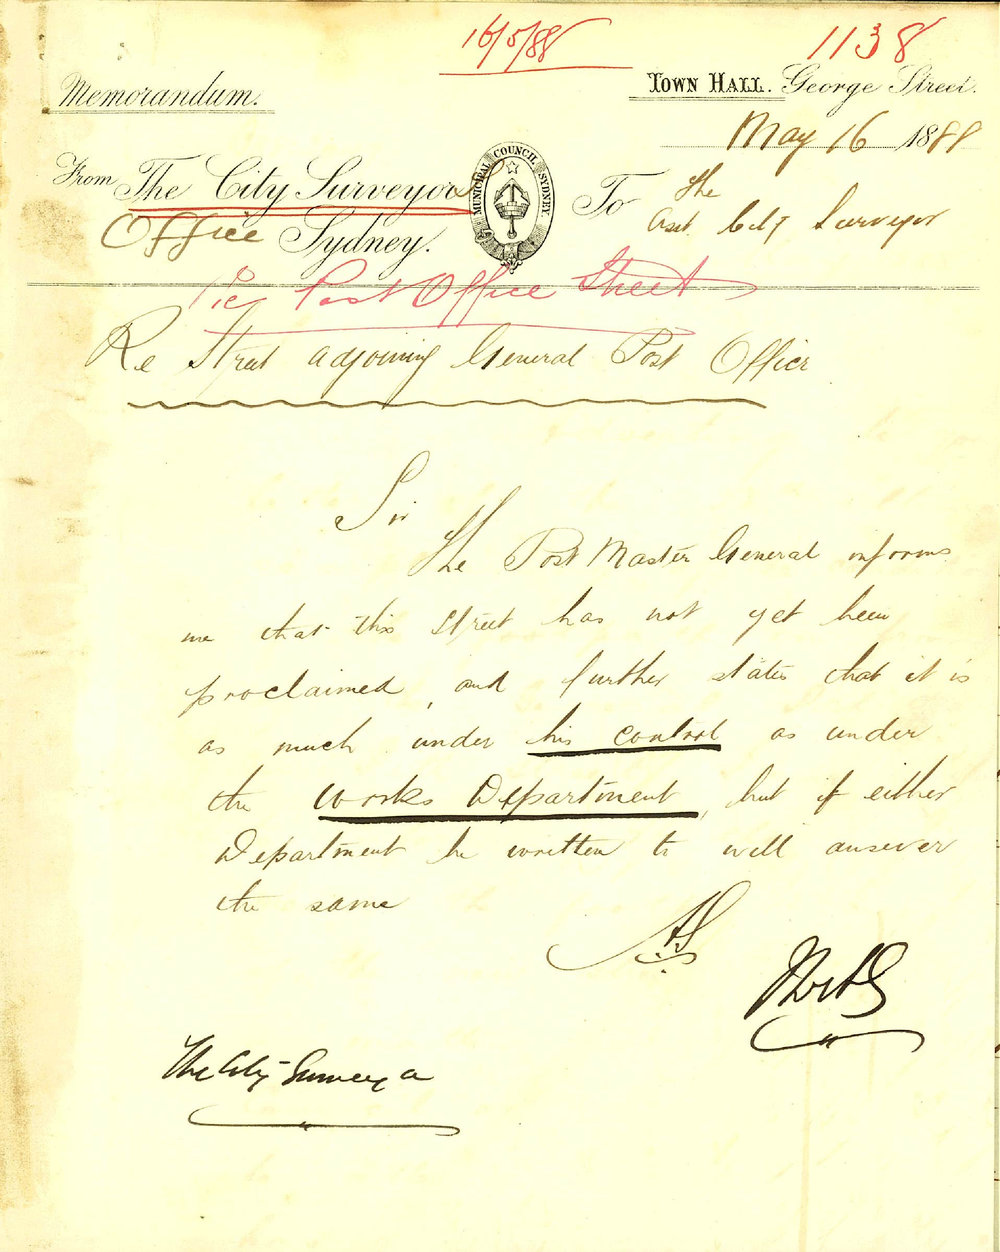 16/5/88
1138
Memorandum.
Town Hall. George Street.
May 16 1888
From The City Surveyor
Office Sydney.
MUNICIPAL COUNCIL SYDNEY
To The
Asst. City Surveyor
Post Office Street
Re Street adjoining General Post Office
Sir
The Post Master General informs
me that this Street has not yet been
proclaimed, and further states that it is
as much under his control as under
the Works Department, but if either
Department be written to will answer
the same
The City Surveyor